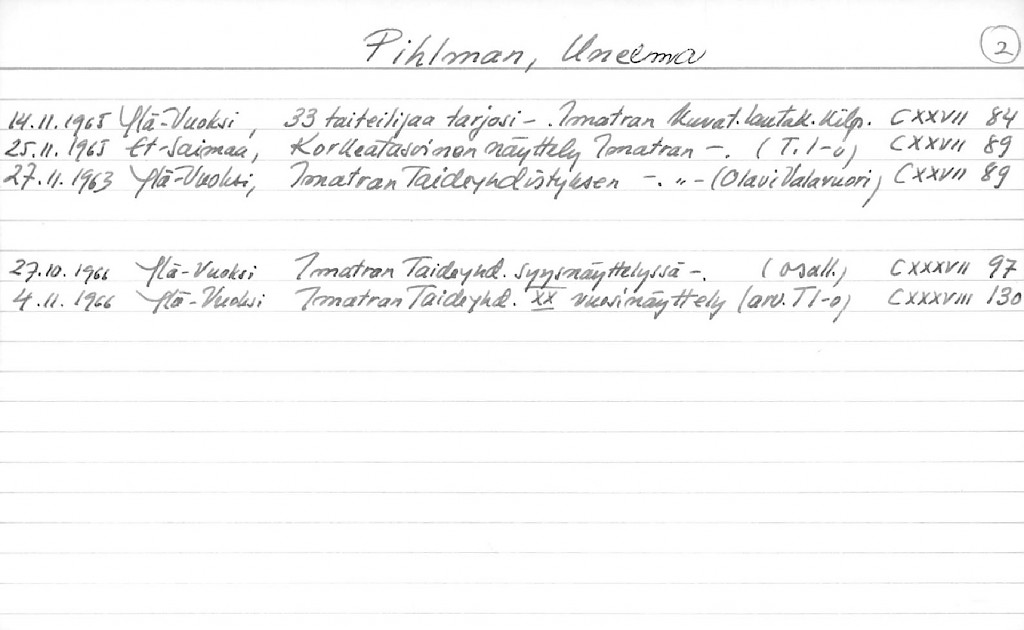 Pihlman, Unelma 2
14.11.1965 Ylä-Vuoksi, 33 taiteilijaa tarjosi -. Imatran kuvat.lautak.kilp. CXXVII 84
25.11.1965 Et-Saimaa, Korkeatasoinen näyttely Imatran -. (T.I-o) CXXVII 89
27.11.1963 Ylä-Vuoksi, Imatran Taideyhdistyksen -. "- (Olavi Valavuori) CXXVII 89
27.10.1966 Ylä-Vuoksi Imatran Taideyhd. syysnäyttelyssä -. (osall.) CXXXVII 97
4.11.1966 Ylä-Vuoksi Imatran Taideyhd. XX vuosinäyttely (arv. T I-o) CXXXVIII 130